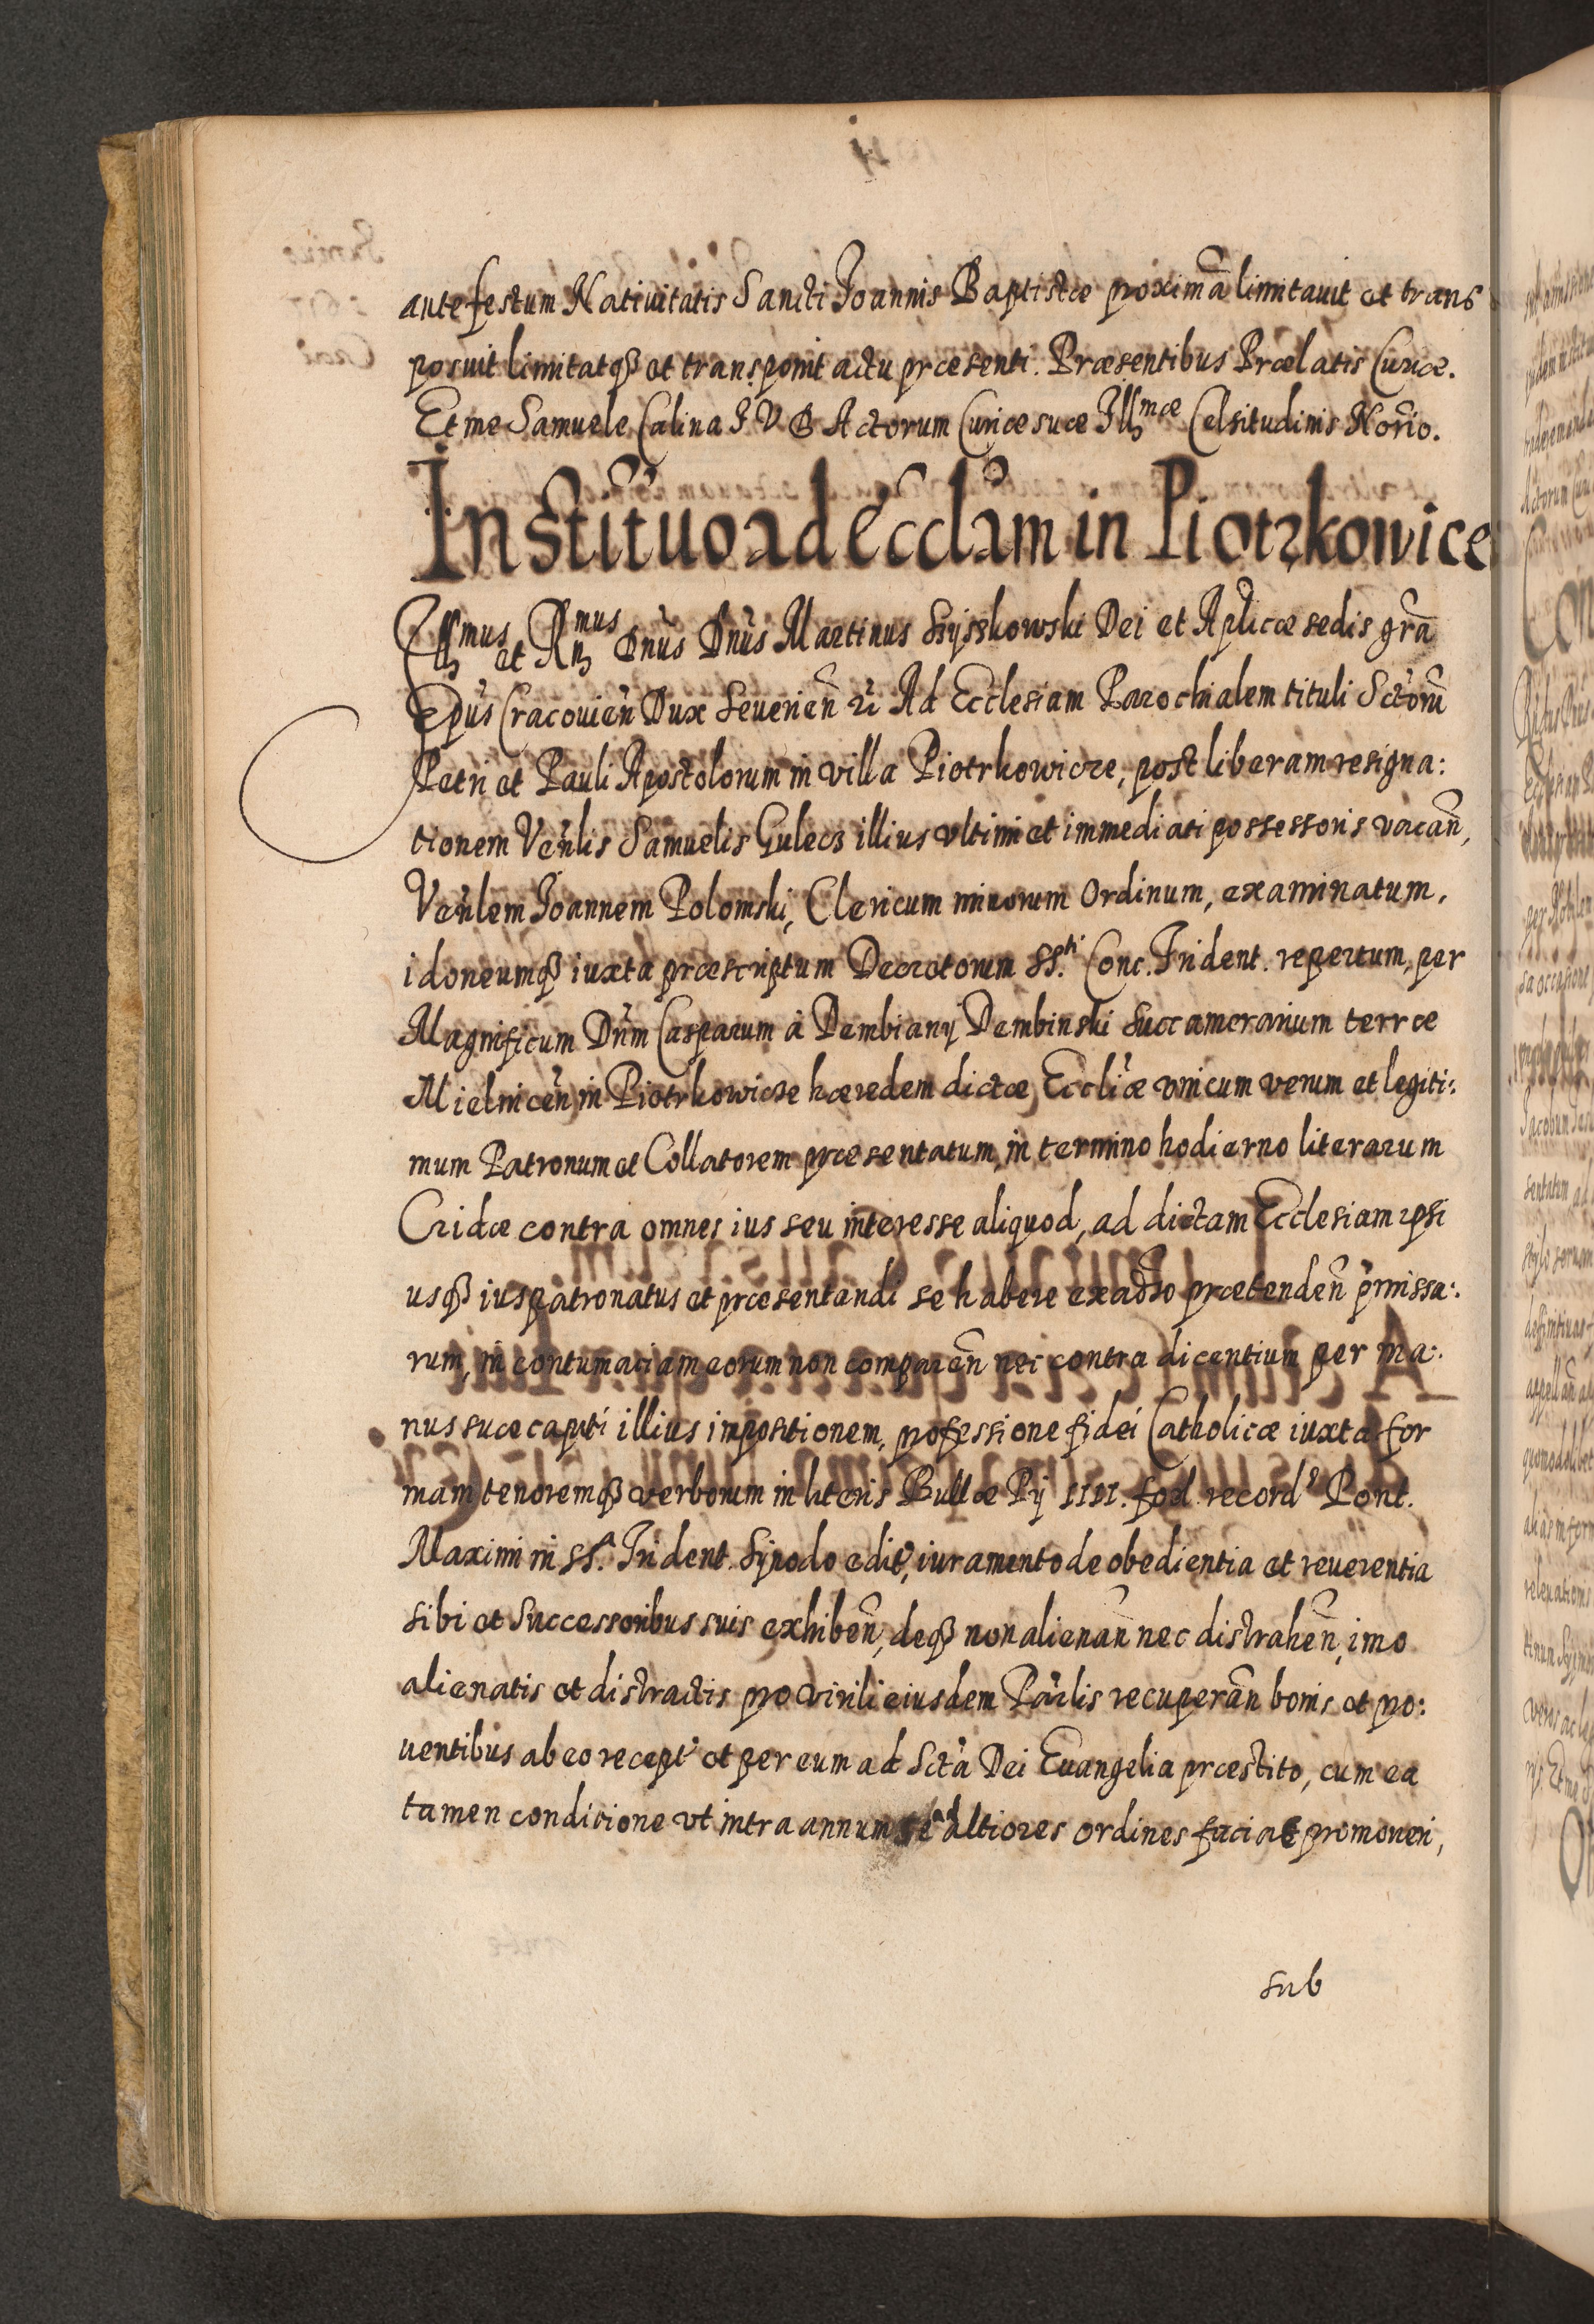 ante festum Natiuitatis Sancti Joannis Baptistæ proximā limitauit et trans
posuit limitatqȝ et transponit actu præsenti. Præsentibus Prælatis Curiæ.
Et me Samuele Calina I V D Actorum Curiæ suæ Illmæ Celsitudinis Norīo.
Institūuo ad ecclām in Piotrkowice
Illmus et Rmus Dnūs Dnūs Martinus Szyszkowski Dei et Aplicæ sedis grā
Epūs Cracouień Dux Seuerień ꝛc̄ Ad Ecclesiam Parochialem tituli Sctōrū
Petri et Pauli Apostolorum in villa Piotrkowicze, post liberam resigna:
tionem Venlis Samuelis Gulecz illius vltimi et immediati possessoris vacan̄,
Venlem Joannem Polomski, Clericum minorum Ordinum, examinatum,
idoneumqȝ iuxta præscriptum Decretorum SS.ti Conc. Trident. repertum, per
Magnificum Dnm̄ Casparum à Dembiany Dembinski Succamerarium terræ
Mielnicen̄, in Piotrkowicze hæredem dictæ Eccliæ vnicum verum et legiti:
mum Patronum et Collatorem præsentatum, in termino hodierno literarum
Cridæ contra omnes ius seu interesse aliquod, ad dictam Ecclesiam ipsi
usqȝ ius patronatus et præsentandi se habere ex aduso prætenden̄ pmissa:
rum, in contumaciam eorum non comparen̄ nec contradicentium per ma:
nus suæ capiti illius impositionem, professione fidei Catholicæ iuxta for
mam tenoremqȝ verborum in literis Bullæ Pij IIII. fœl. record. Pont.
Maximi in SS.a Trident. Synodo edit, iuramento de obedientia et reuerentia
sibi et Successoribus suis exhiben̄, deqȝ non alienan̄ nec distrahen̄, imo
alienatis et distractis pro virili eiusdem Parlis recuperan̄ bonis et pro:
uentibus ab eo recept et per eum ad Sctā Dei Euangelia præstito, cum ea
tamen conditione vt intra annum se ad altiores ordines faciat promoueri,
sub